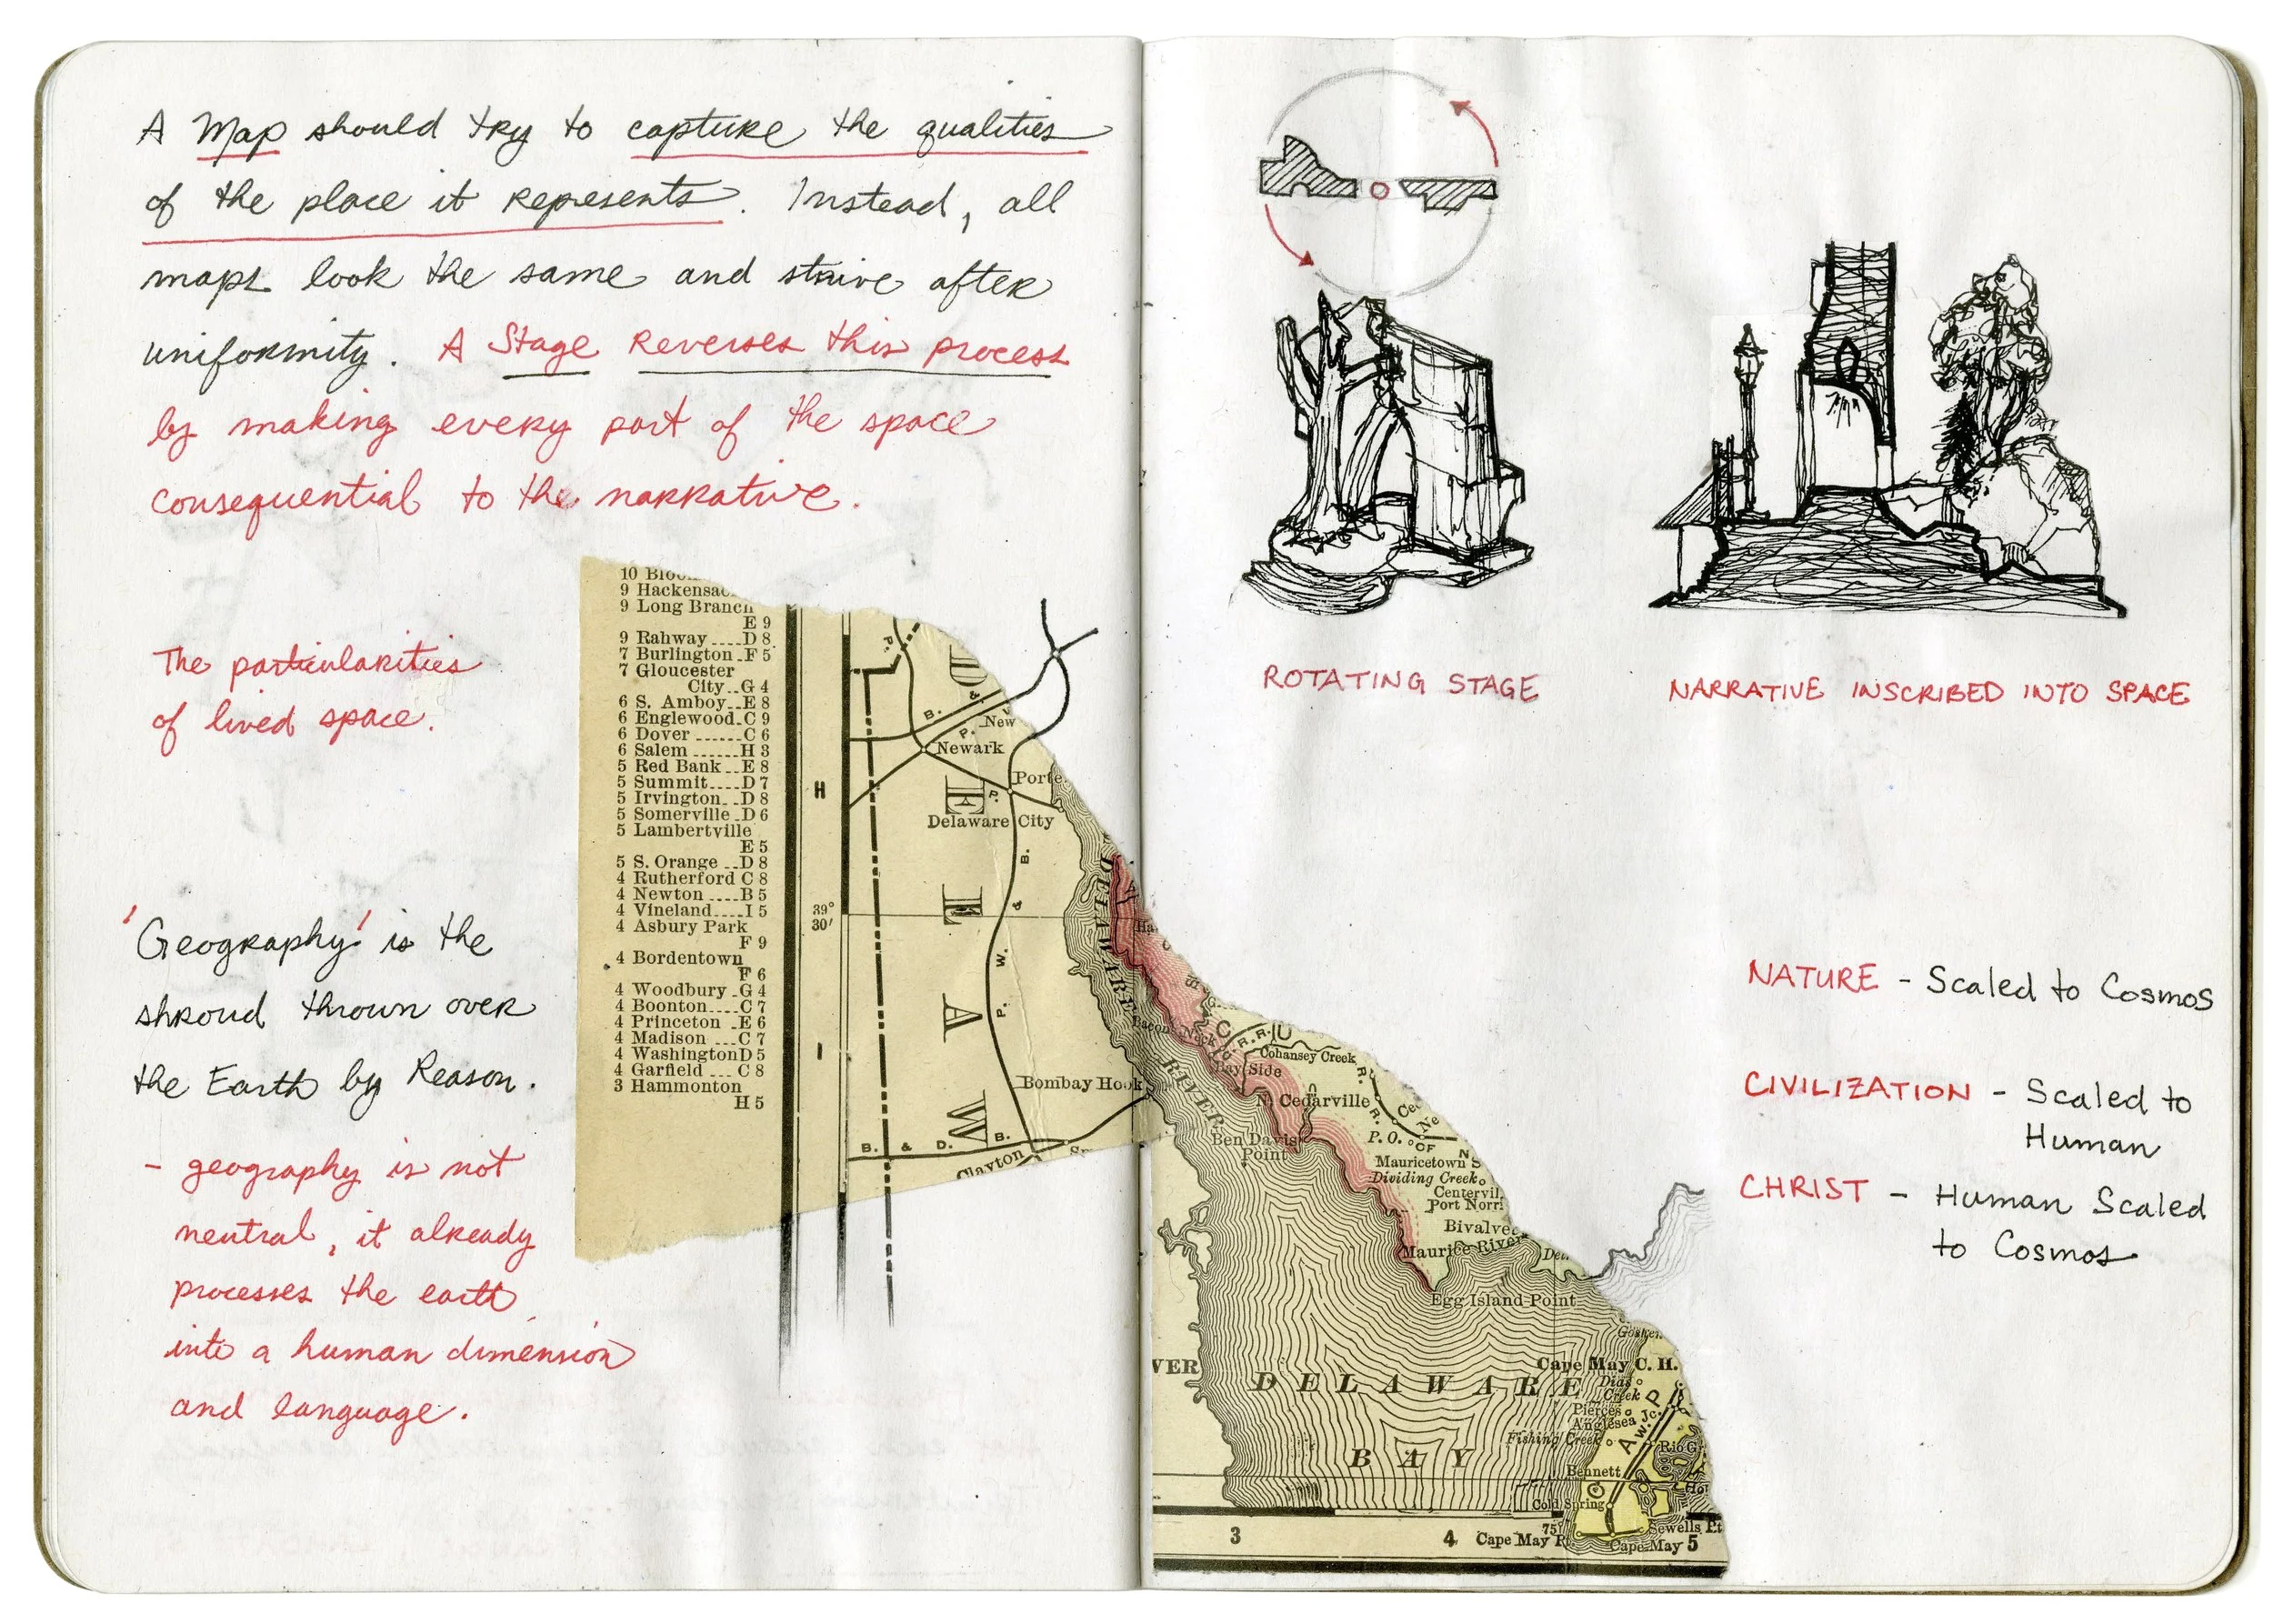 A Map should try to capture the qualities
of the place it represents. Instead, all
maps look the same and strive after
uniformity. A Stage reverses this process
by making every part of the space
consequential to the narrative.
The particularities
of lived space.
'Geography' is the
shroud thrown over
the Earth by Reason.
- geography is not
neutral, it already
processes the earth
into a human dimension
and language.
9 Long Branch
E 9
9 Rahway....D 8
7 Burlington.F 5
7 Gloucester
City..G 4
6 S. Amboy..E 8
6 Englewood.C 9
6 Dover ......C 6
6 Salem ......H 3
5 Red Bank ..E 8
5 Summit....D 7
5 Irvington..D 8
5 Somerville.D 6
5 Lambertville
E 5
5 S. Orange ..D 8
4 Rutherford C 8
4 Newton ....B 5
4 Vineland....I 5
4 Asbury Park
F 9
4 Bordentown
F 6
4 Woodbury.G 4
4 Boonton....C 7
4 Princeton .E 6
4 Madison ...C 7
4 Washington D 5
4 Garfield ... C 8
3 Hammonton
H 5
H
39°
30'
I
D
E
L
A
W
B. &
P. W.
New
Newark
Porte
Delaware City
B. & P. W.
Bombay Hook
B. & D. B.
Clayton
DELAWARE
RIVER
Bacons Neck
C U
R.R.
Cohansey Creek
Bay Side
Cedarville
Ben Davis
Point
P.O.
Mauricetown
Dividing Creek
Centervil
Port Norri
Bivalve
Maurice River
Egg Island Point
Goshen
VER
DELAWARE
BAY
Cape May C. H.
Dias
Creek
Pierces
Anglesea Jc.
Fishing Creek
Rio G
Bennett
Cold Spring
Sewells Pt
75°
Cape May P
Cape May
3 4 5
ROTATING STAGE
NARRATIVE INSCRIBED INTO SPACE
NATURE - Scaled to Cosmos
CIVILIZATION - Scaled to
Human
CHRIST - Human Scaled
to Cosmos